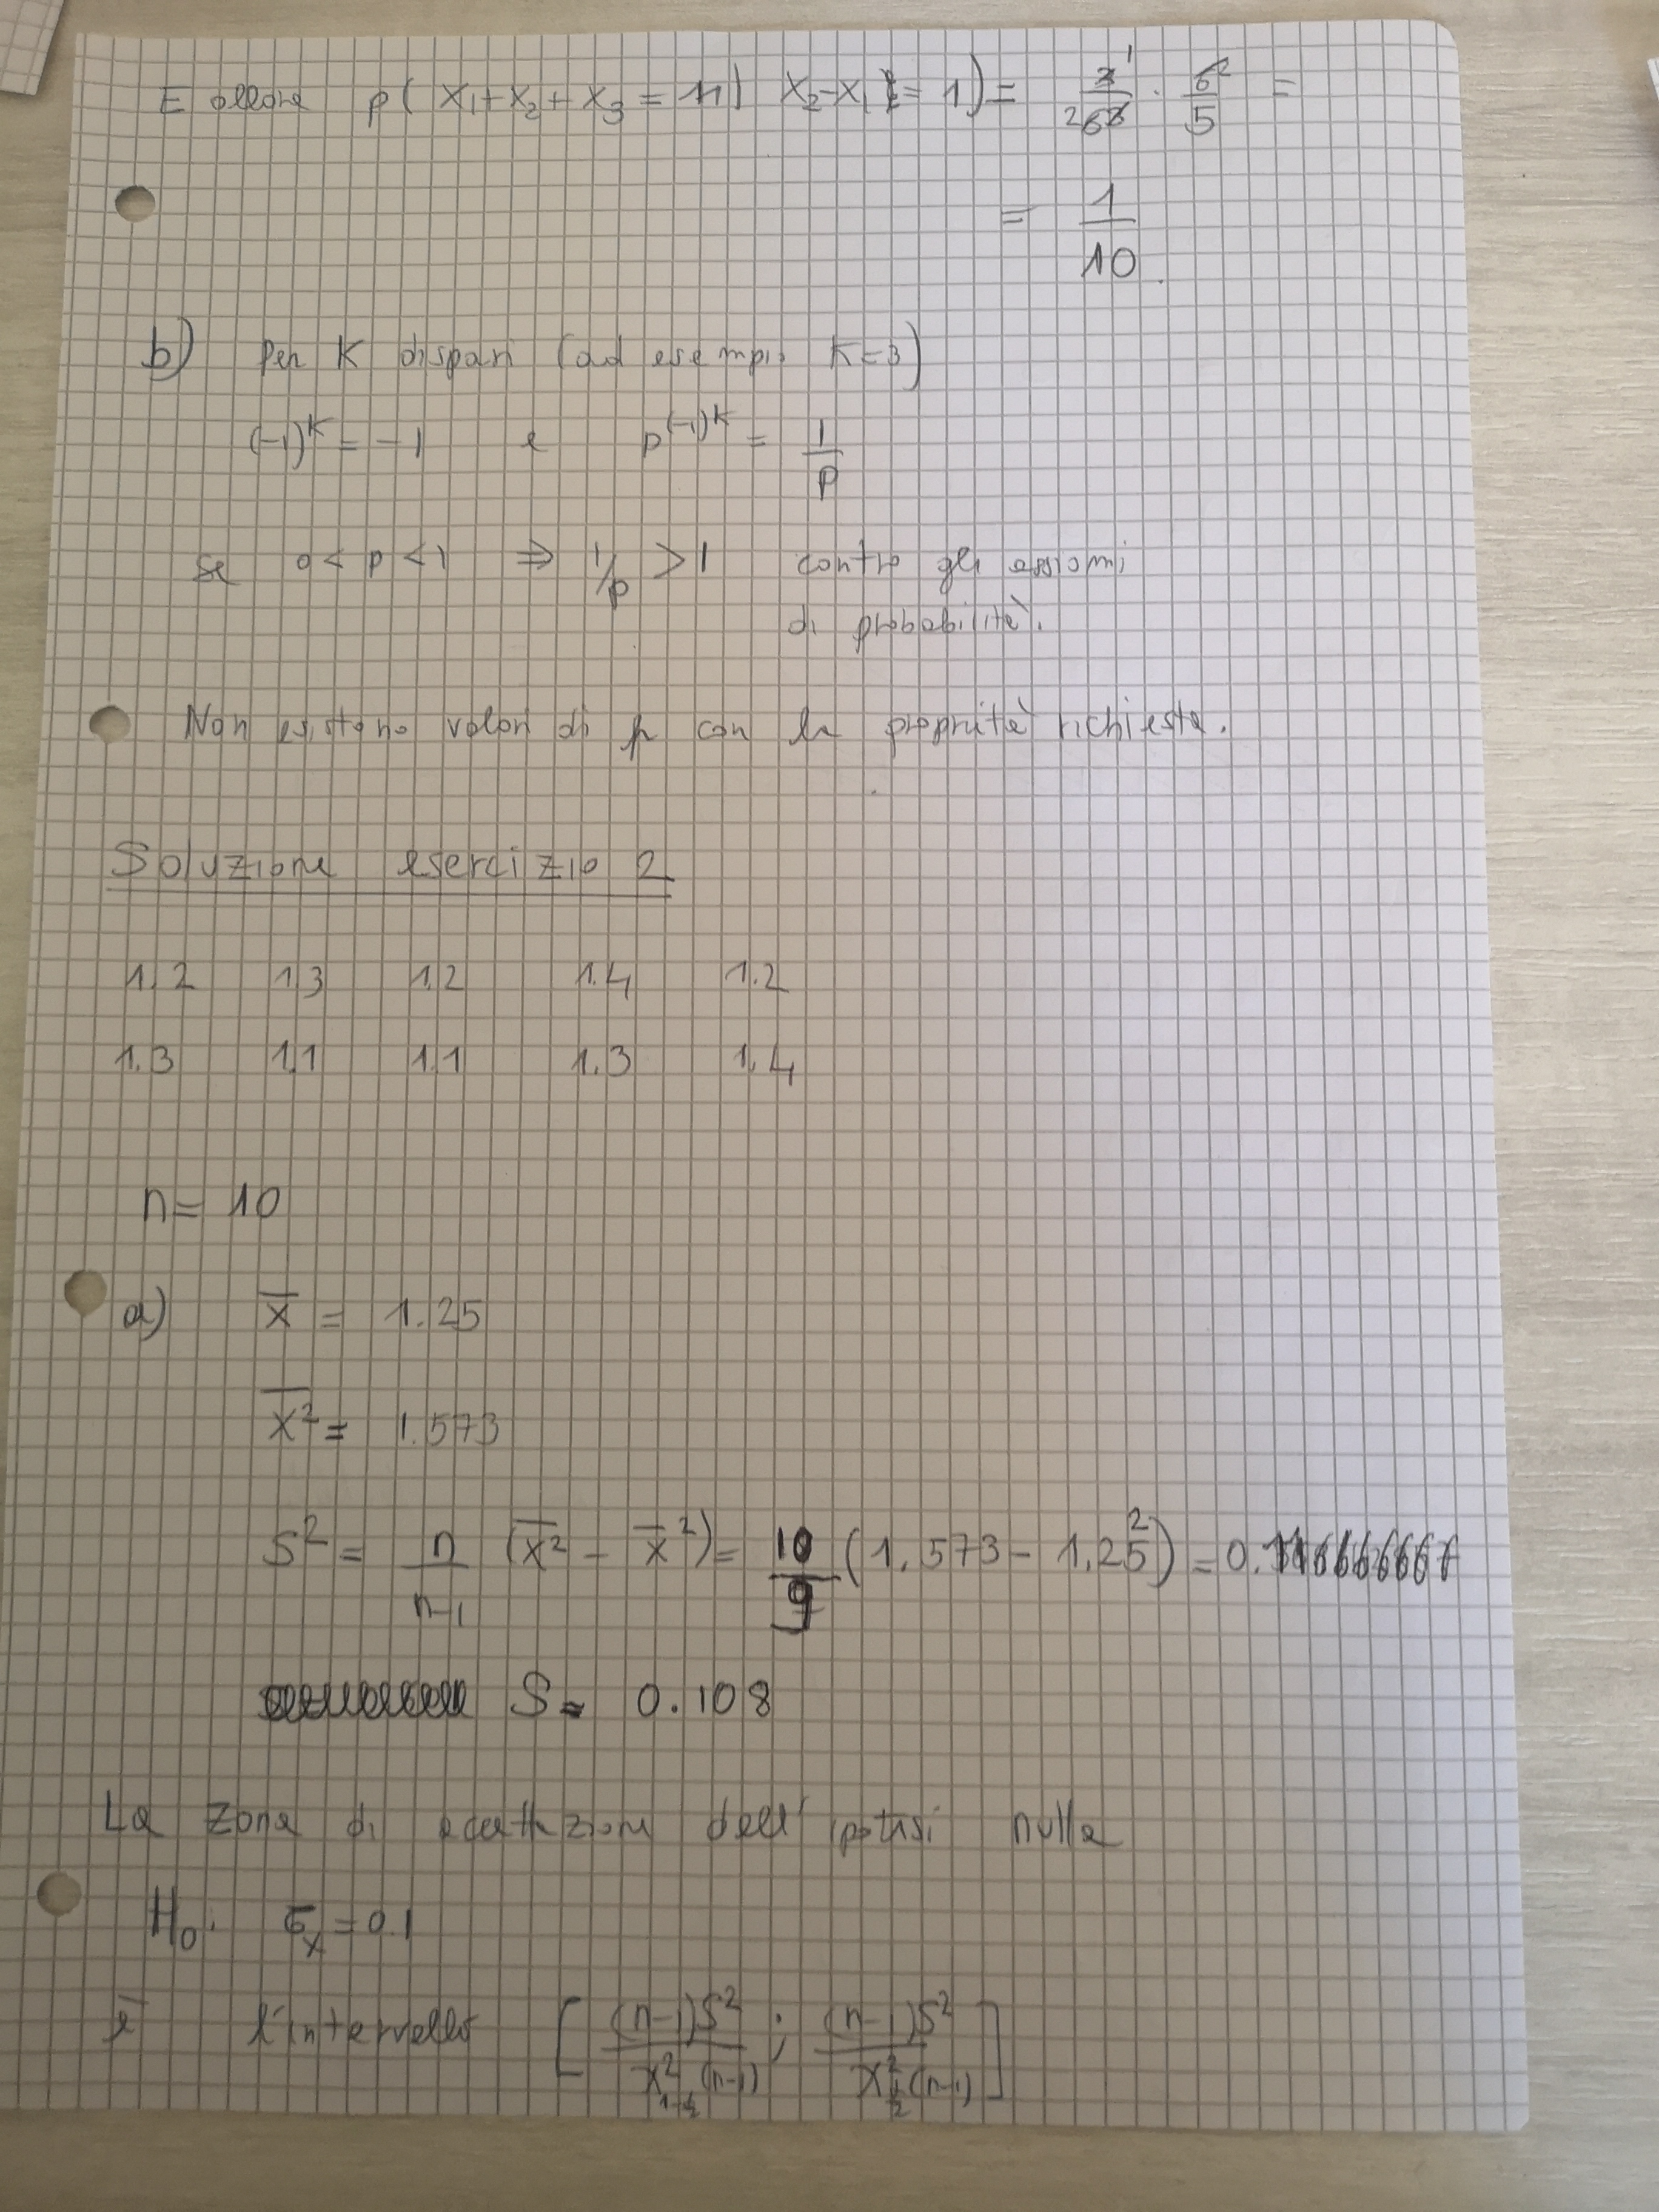 E allora p( X₁+X₂+X₃ = 11 | X₂-X₁ = 1) = 3¹/2 6³ · 6²/5 =
= 1/10.
b) Per K dispari (ad esempio K=3)
(-1)^K = -1 e p^(-1)^K = 1/p
se 0 < p < 1 ⇒ 1/p > 1 contro gli assiomi
di probabilità.
Non esistono valori di p con la proprietà richiesta.
Soluzione esercizio 2
1.2 1.3 1.2 1.4 1.2
1.3 1.1 1.1 1.3 1.4
n = 10
a) x̄ = 1.25
\overline{x²} = 1.573
S² = n/(n-1) (\overline{x²} - x̄²) = 10/9 (1.573 - 1.25²) = 0.
S = 0.108
La zona di accettazione dell'ipotesi nulla
H₀: σ_x = 0.1
è l'intervallo [ (n-1)S²/χ²_{1-α/2}(n-1) ; (n-1)S²/χ²_{α/2}(n-1) ]